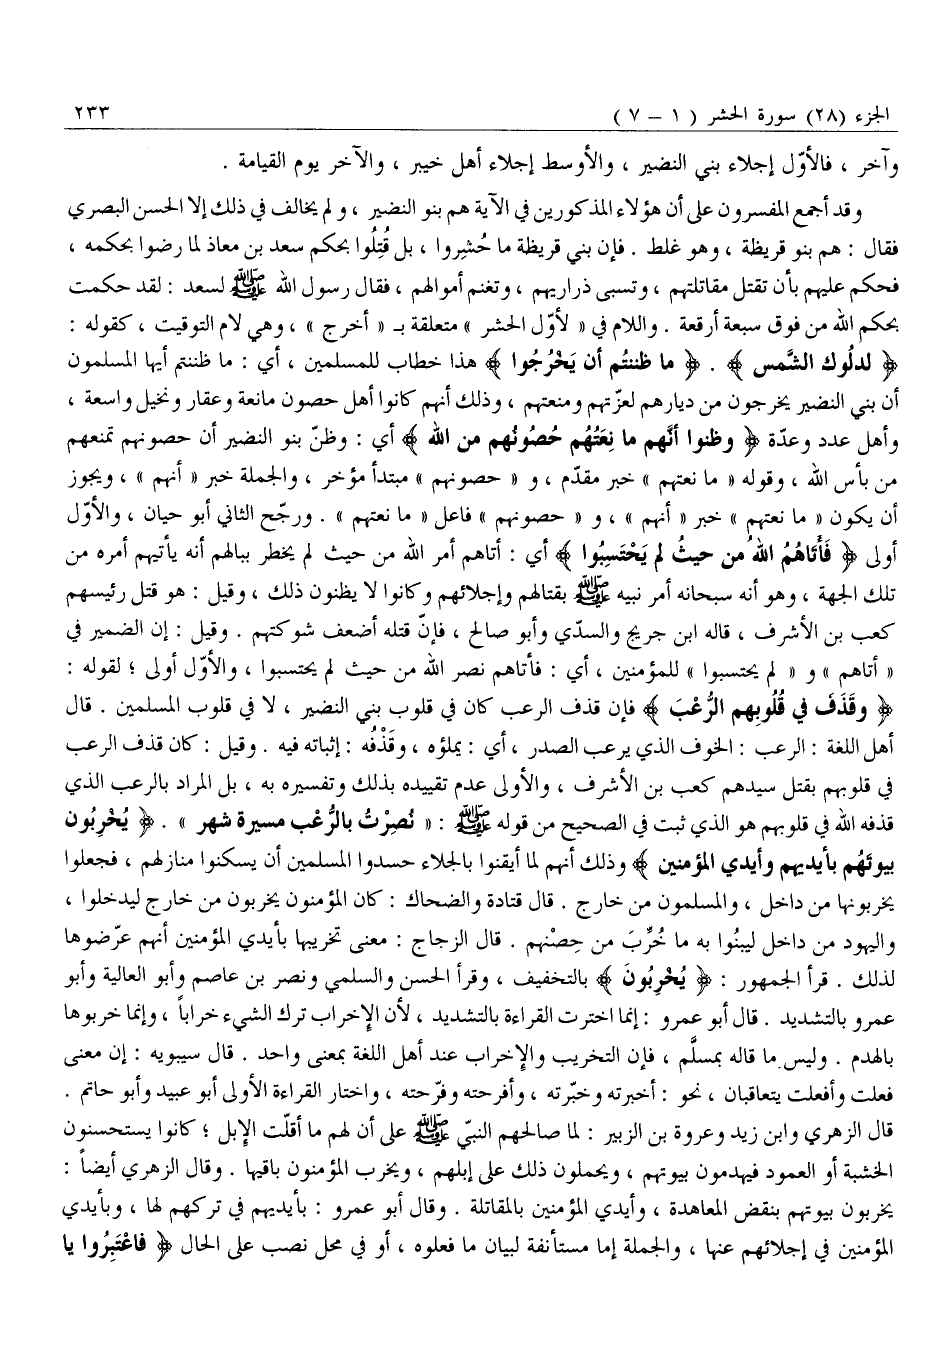 الجزء (٢٨) سورة الحشر ( ١ – ٧ ) ٢٣٣
وآخر ، فالأوّل إجلاء بني النضير ، والأوسط إجلاء أهل خيبر ، والآخر يوم القيامة .
وقد أجمع المفسرون على أن هؤلاء المذكورين في الآية هم بنو النضير ، ولم يخالف في ذلك إلا الحسن البصري
فقال : هم بنو قريظة ، وهو غلط . فإن بني قريظة ما حُشِروا ، بل قُتِلُوا بحكم سعد بن معاذ لما رضوا بحكمه ،
فحكم عليهم بأن تقتل مقاتلتهم ، وتسبى ذراريهم ، وتغنم أموالهم ، فقال رسول الله ﷺ لسعد : لقد حكمت
بحكم الله من فوق سبعة أرقعة . واللام في « لأوّل الحشر » متعلقة بـ « أخرج » ، وهي لام التوقيت ، كقوله :
﴿ لدلُوك الشَّمس ﴾ . ﴿ ما ظننتُم أن يَخْرُجُوا ﴾ هذا خطاب للمسلمين ، أي : ما ظننتم أيها المسلمون
أن بني النضير يخرجون من ديارهم لعزّتهم ومنعتهم ، وذلك أنهم كانوا أهل حصون مانعة وعقار ونخيل واسعة ،
وأهل عدد وعدّة ﴿ وظنوا أنَّهم ما نِعَتُهُم حُصُونُهم من الله ﴾ أي : وظنّ بنو النضير أن حصونهم تمنعهم
من بأس الله ، وقوله « ما نعتهم » خبر مقدّم ، و « حصونهم » مبتدأ مؤخر ، والجملة خبر « أنهم » ، ويجوز
أن يكون « ما نعتهم » خبر « أنهم » ، و « حصونهم » فاعل « ما نعتهم » . ورجّح الثاني أبو حيان ، والأوّل
أولى ﴿ فَأَتَاهُمُ اللهُ من حيثُ لم يَحْتَسِبُوا ﴾ أي : أتاهم أمر الله من حيث لم يخطر ببالهم أنه يأتيهم أمره من
تلك الجهة ، وهو أنه سبحانه أمر نبيه ﷺ بقتالهم وإجلائهم وكانوا لا يظنون ذلك ، وقيل : هو قتل رئيسهم
كعب بن الأشرف ، قاله ابن جريج والسدّي وأبو صالح ، فإنّ قتله أضعف شوكتهم . وقيل : إن الضمير في
« أتاهم » و « لم يحتسبوا » للمؤمنين ، أي : فأتاهم نصر الله من حيث لم يحتسبوا ، والأوّل أولى ؛ لقوله :
﴿ وقَذَفَ في قُلُوبِهم الرُّعْبَ ﴾ فإن قذف الرعب كان في قلوب بني النضير ، لا في قلوب المسلمين . قال
أهل اللغة : الرعب : الخوف الذي يرعب الصدر ، أي : يملؤه ، وقَذْفُه : إثباته فيه . وقيل : كان قذف الرعب
في قلوبهم بقتل سيدهم كعب بن الأشرف ، والأولى عدم تقييده بذلك وتفسيره به ، بل المراد بالرعب الذي
قذفه الله في قلوبهم هو الذي ثبت في الصحيح من قوله ﷺ : « نُصِرْتُ بالرُّعْب مسيرة شهر » . ﴿ يُخْرِبُون
بيوتَهُم بأيديهم وأيدي المؤمنين ﴾ وذلك أنهم لما أيقنوا بالجلاء حسدوا المسلمين أن يسكنوا منازلهم ، فجعلوا
يخربونها من داخل ، والمسلمون من خارج . قال قتادة والضحاك : كان المؤمنون يخربون من خارج ليدخلوا ،
واليهود من داخل ليبنُوا به ما خُرِّبَ من حِصْنهم . قال الزجاج : معنى تخريبها بأيدي المؤمنين أنهم عرّضوها
لذلك . قرأ الجمهور : ﴿ يُخْرِبُونَ ﴾ بالتخفيف ، وقرأ الحسن والسلمي ونصر بن عاصم وأبو العالية وأبو
عمرو بالتشديد . قال أبو عمرو : إنما اخترت القراءة بالتشديد ، لأن الإخراب ترك الشيء خراباً ، وإنما خربوها
بالهدم . وليس ما قاله بمسلَّم ، فإن التخريب والإخراب عند أهل اللغة بمعنى واحد . قال سيبويه : إن معنى
فعلت وأفعلت يتعاقبان ، نحو : أخبرته وخبّرته ، وأفرحته وفرّحته ، واختار القراءة الأولى أبو عبيد وأبو حاتم .
قال الزهري وابن زيد وعروة بن الزبير : لما صالحهم النبيّ ﷺ على أن لهم ما أقلّت الإبل ؛ كانوا يستحسنون
الخشبة أو العمود فيهدمون بيوتهم ، ويحملون ذلك على إبلهم ، ويخرب المؤمنون باقيها . وقال الزهري أيضاً :
يخربون بيوتهم بنقض المعاهدة ، وأيدي المؤمنين بالمقاتلة . وقال أبو عمرو : بأيديهم في تركهم لها ، وبأيدي
المؤمنين في إجلائهم عنها ، والجملة إما مستأنفة لبيان ما فعلوه ، أو في محل نصب على الحال ﴿ فاعْتَبِرُوا يا